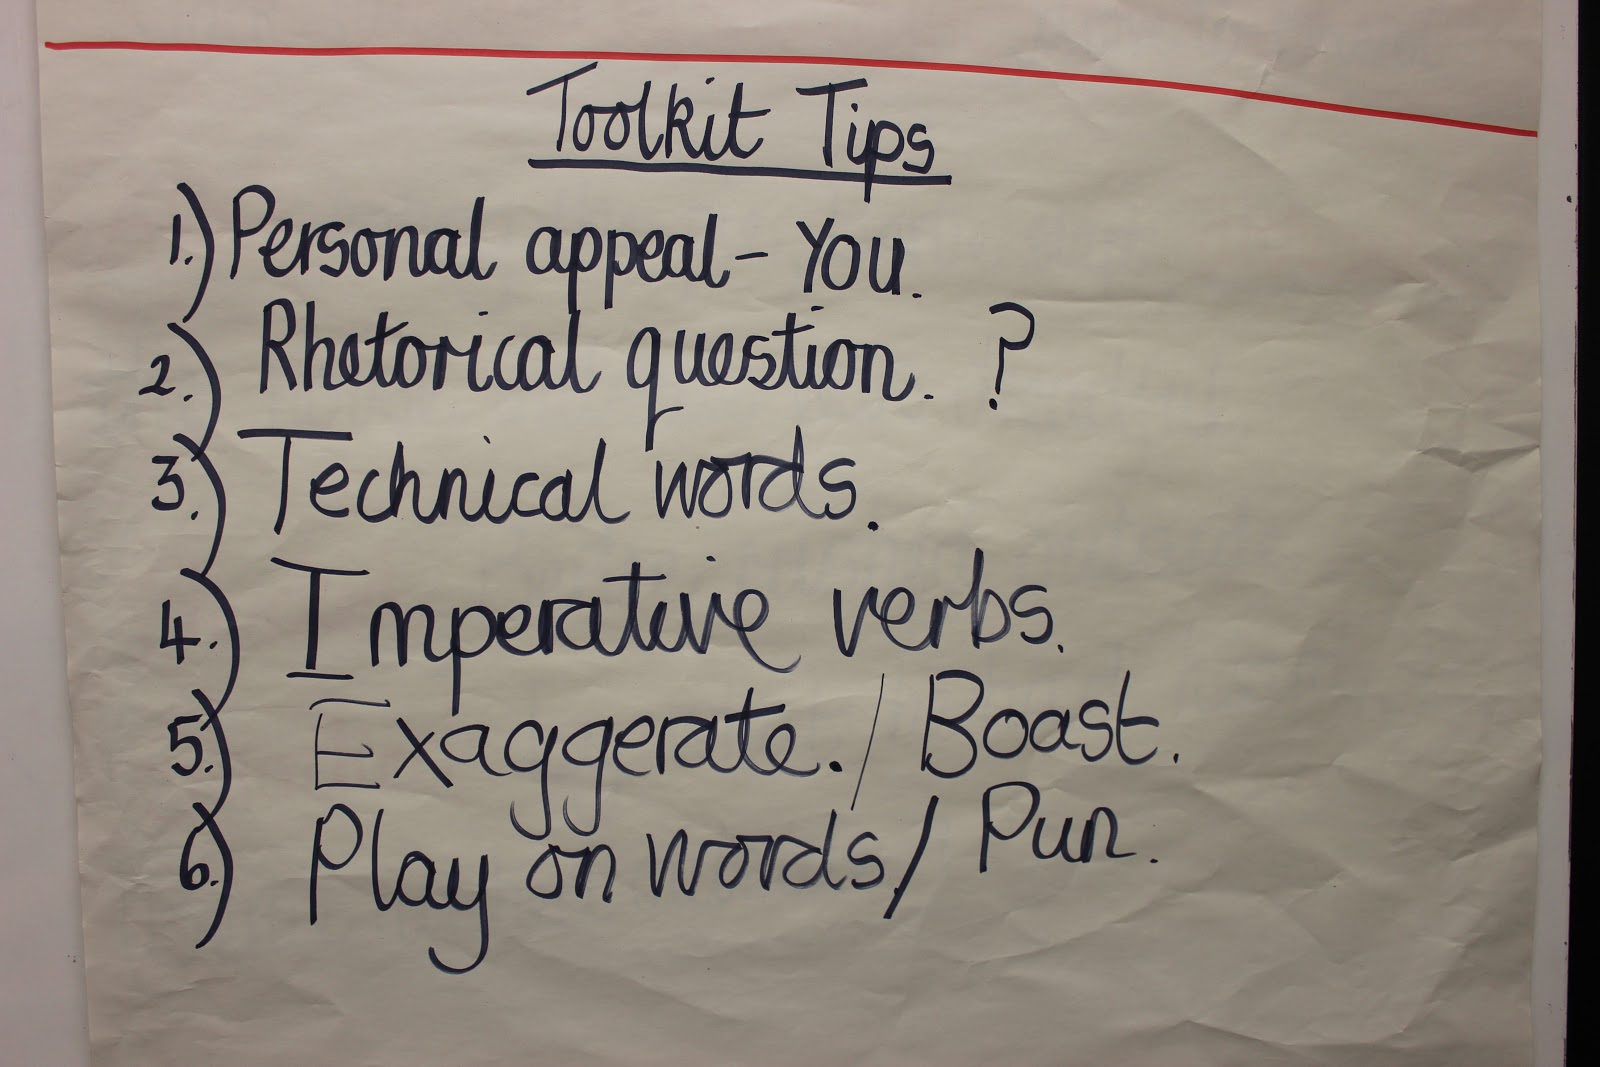 Toolkit Tips
1.) Personal appeal - You.
2.) Rhetorical question. ?
3.) Technical words.
4.) Imperative verbs.
5.) Exaggerate. / Boast.
6.) Play on words / Pun.